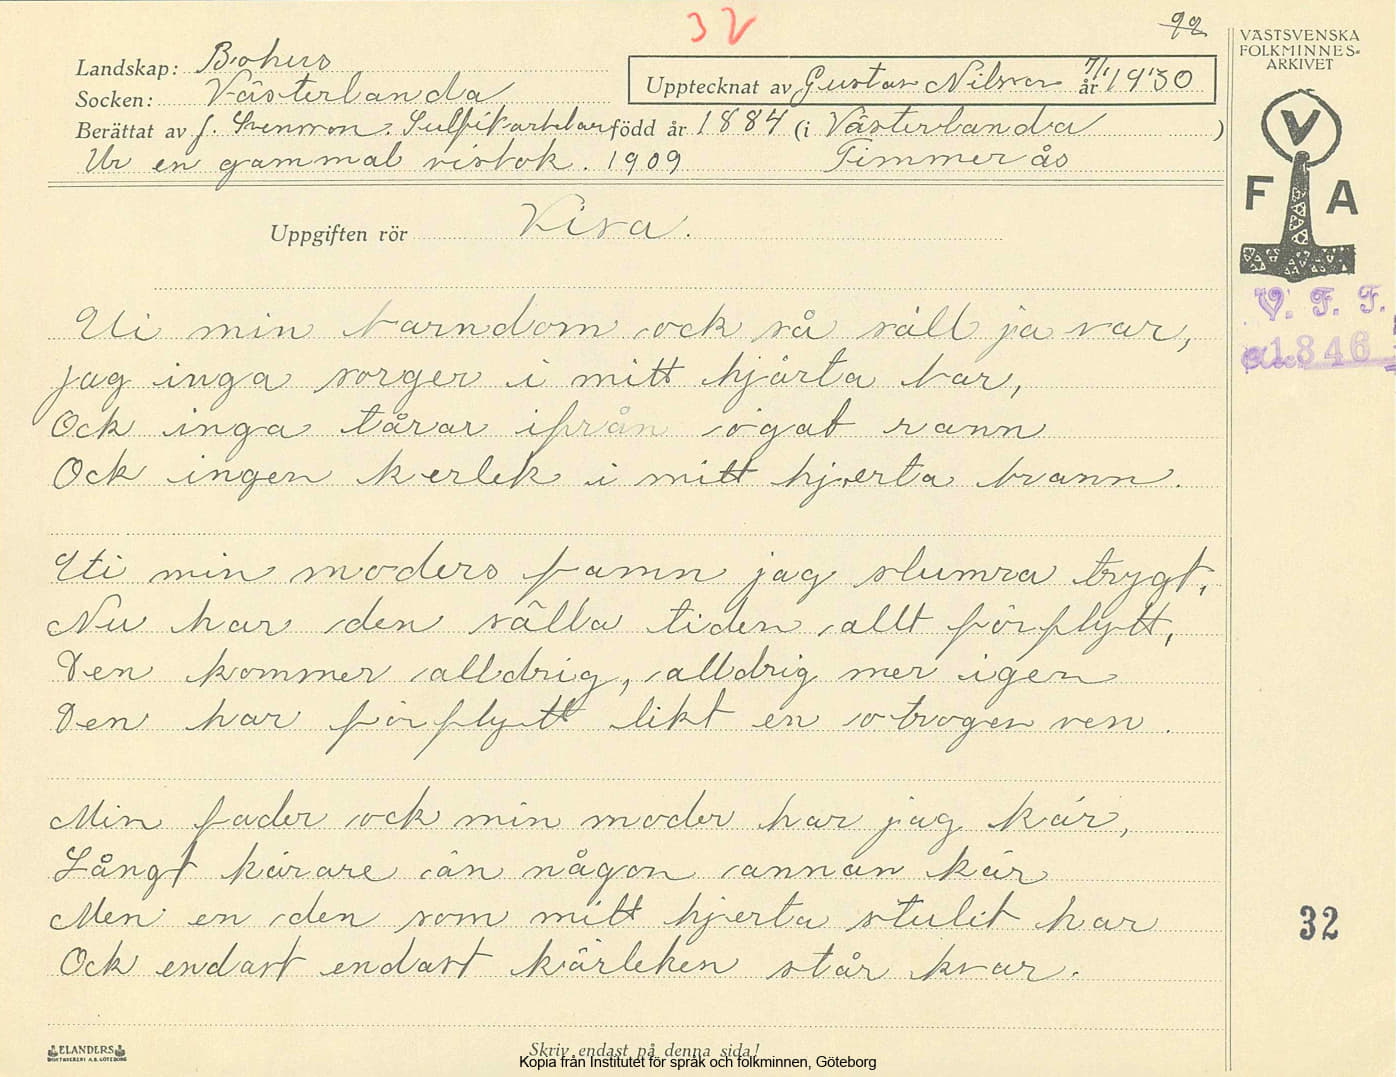 32
92
VÄSTSVENSKA
FOLKMINNES-
ARKIVET
Landskap: Bohus
Upptecknat av Gustav Nilson 7/1 år 1930
Socken: Västerlanda
Berättat av J. Svenson. Sulfitarbetare född år 1884 (i Västerlanda )
Ur en gammal visbok. 1909 Timmerås
V
F A
Uppgiften rör Visa.
V. F. F.
1846
Uti min barndom ock så säll ja var,
jag inga sorger i mitt hjärta bar,
Ock inga tårar ifrån ögat rann
Ock ingen kerlek i mitt hjerta brann.
Uti min moders famn jag slumra trygt,
Nu har den sälla tiden allt förflytt,
Den kommer alldrig, alldrig mer igen
Den har förflytt likt en otrogen ven.
Min fader ock min moder har jag kär,
Långt kärare än någon annan kär
Men en den som mitt hjerta stulit har
Ock endast endast kärleken står kvar.
32
ELANDERS
BOKTRYCKERI A.B. GÖTEBORG
Skriv endast på denna sida!
Kopia från Institutet för språk och folkminnen, Göteborg